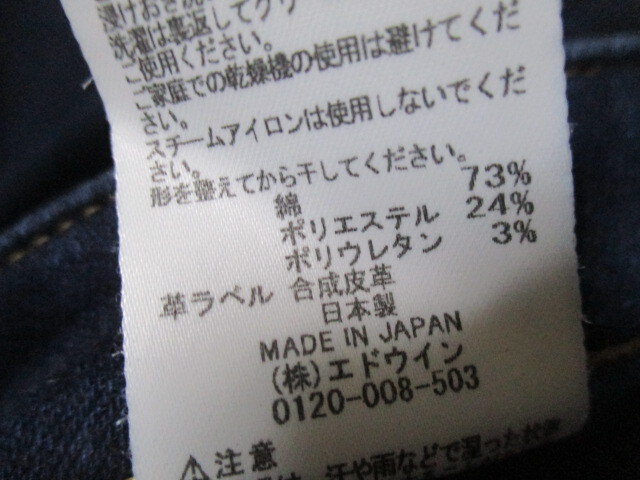 洗濯は裏返してクリー
ご使用ください。
ご家庭での乾燥機の使用は避けてくだ
さい。
スチームアイロンは使用しないでくだ
さい。
形を整えてから干してください。
綿 73%
ポリエステル 24%
ポリウレタン 3%
革ラベル 合成皮革
日本製
MADE IN JAPAN
(株)エドウイン
0120-008-503
⚠注意
汗や雨などで湿った状態